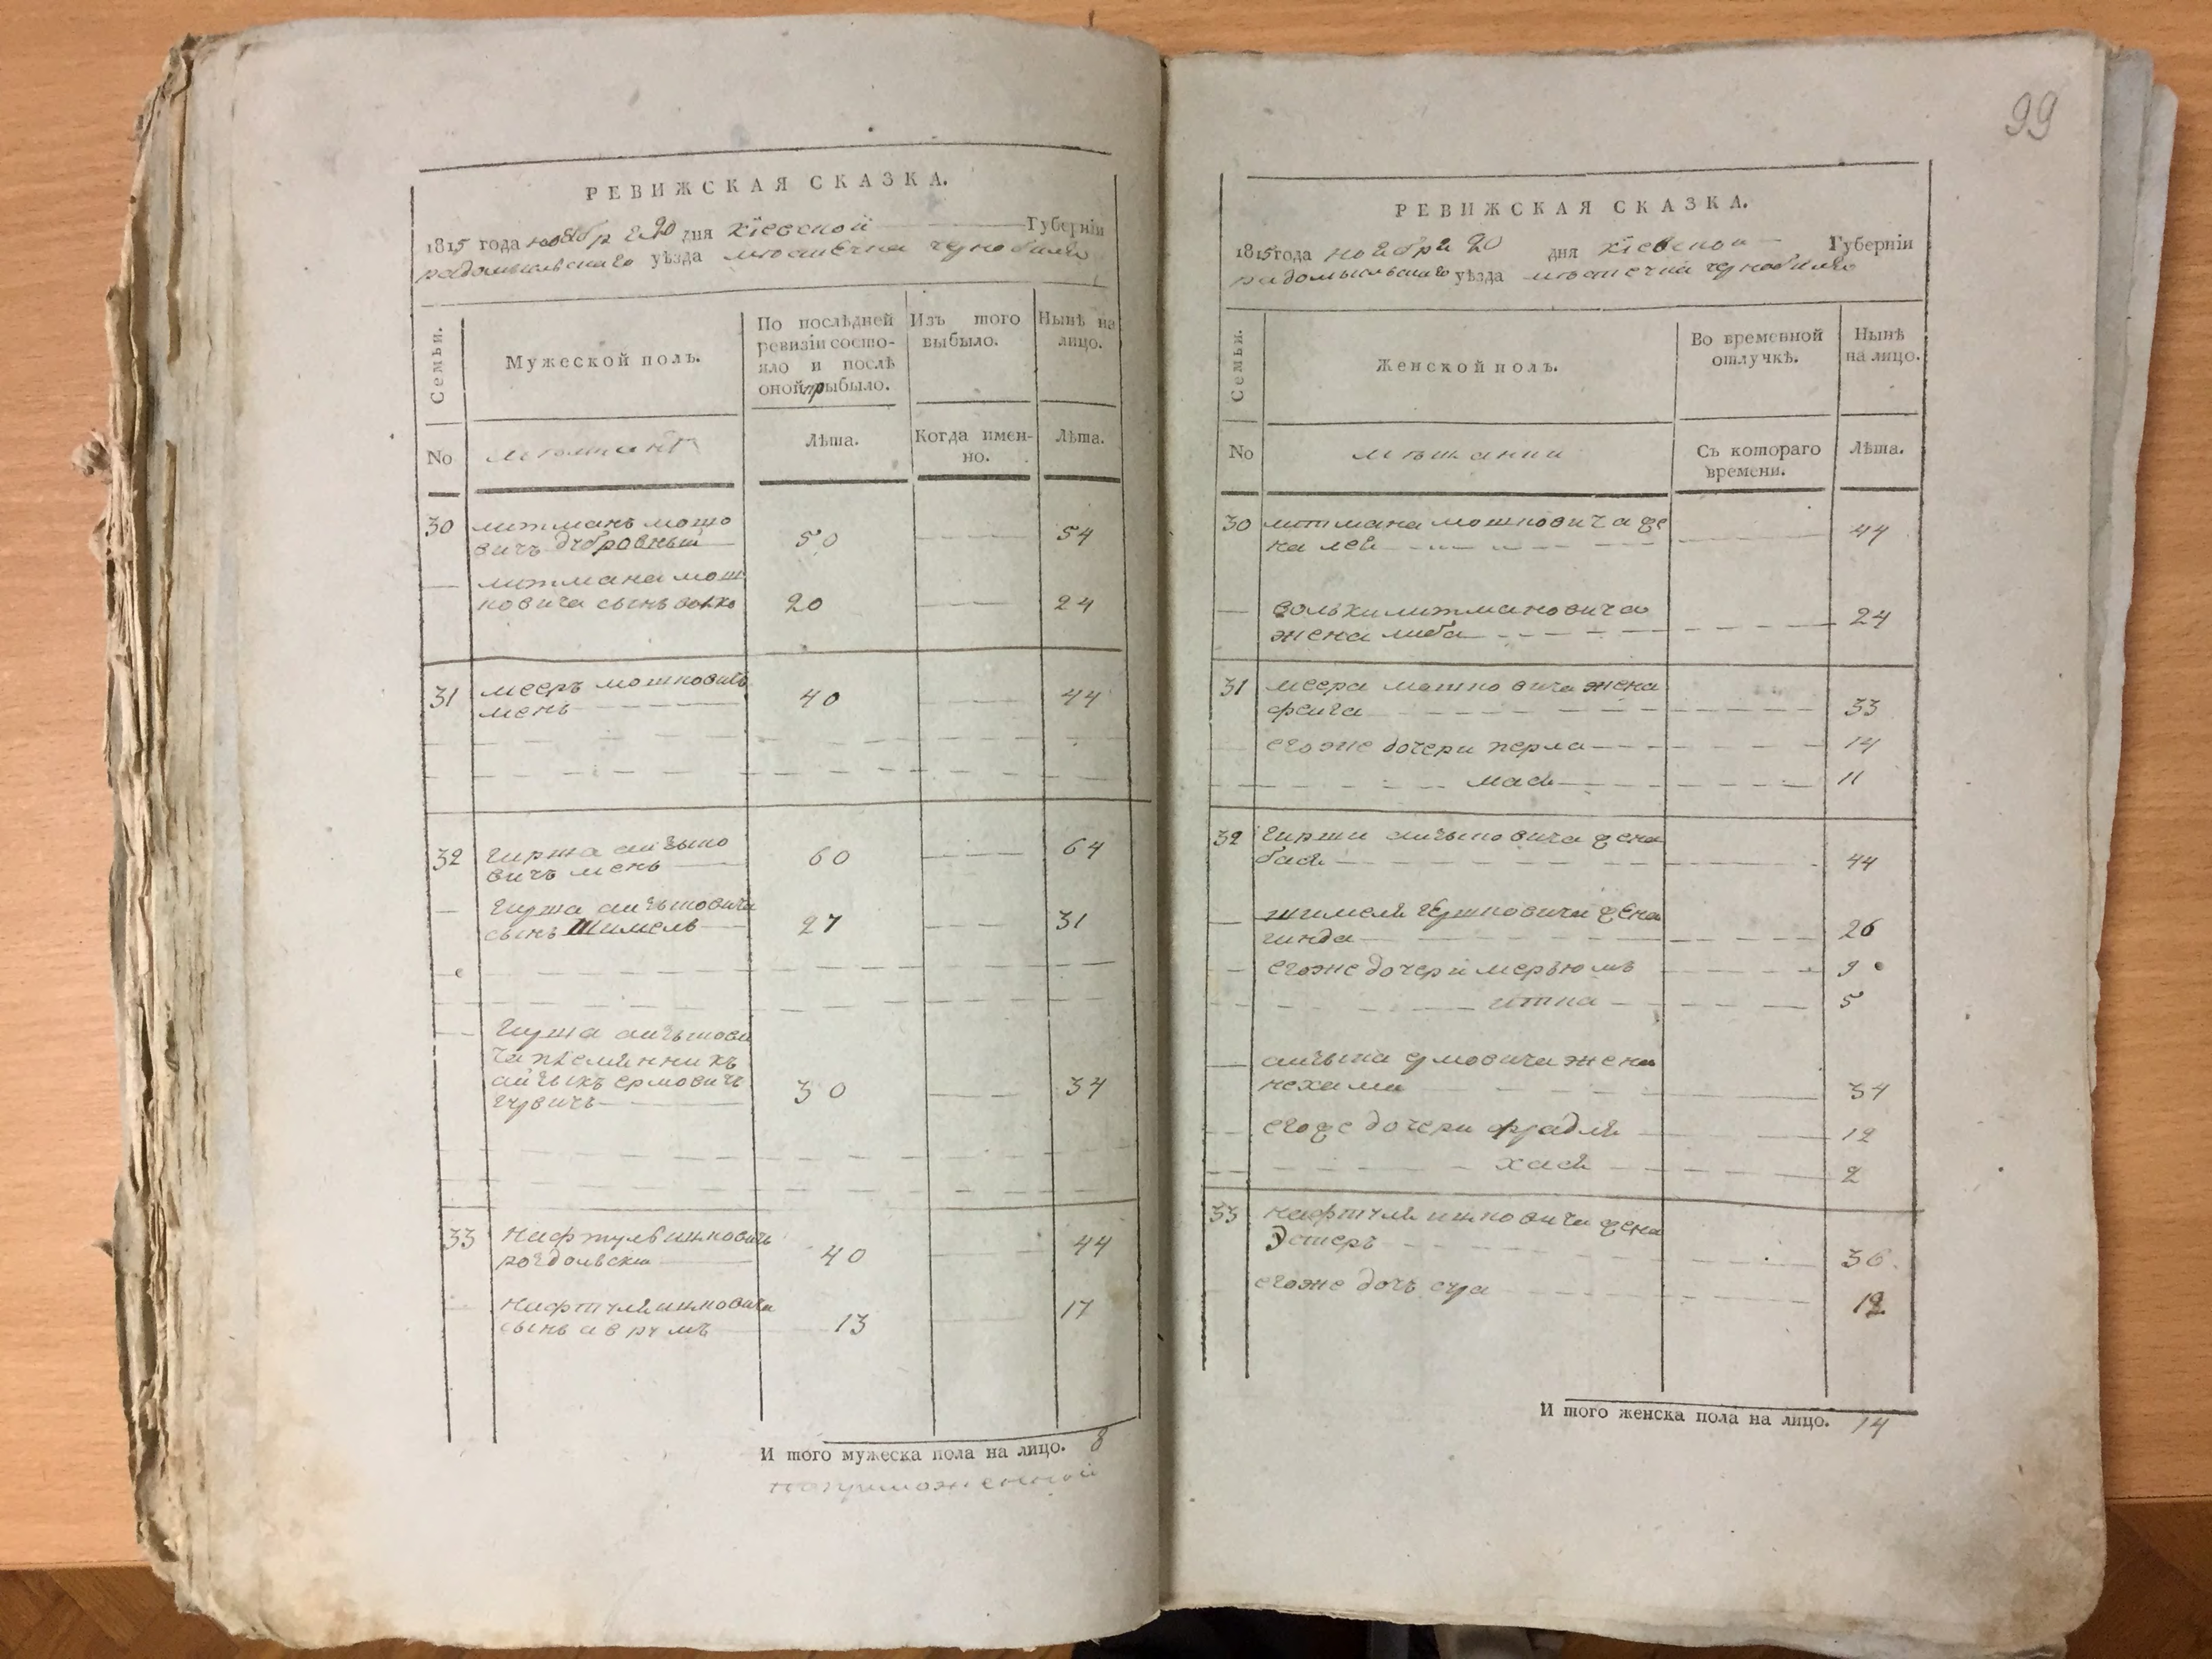 РЕВИЖСКАЯ СКАЗКА.
1815 года ноября 20 дня кіевской Губерніи
радомыльскаго уѣзда мѣстечка чернобыля
Семьи.
Мужеской полъ.
По послѣдней ревизіи состояло и послѣ оной прибыло.
Изъ того выбыло.
Нынѣ на лицо.
No
Лѣта.
Когда именно.
Лѣта.
30 литманъ мошко
вичъ дубровный 50 54
литмана мош
ковича сынъ волко 20 24
31 мееръ мошковичъ
мень 40 44
32 гирша айзыко
вичъ мень 60 64
гирша айзыковича
сынъ Шимель 27 31
гирша айзыкови
ча племянникъ
айзыкъ ермовичъ
гурвичъ 30 34
33 нафтуль ицковичъ
роздольски 40 44
нафтуля ицковича
сынъ аврумъ 13 17
И того мужеска пола на лицо. 8
99
РЕВИЖСКАЯ СКАЗКА.
1815 года ноября 20 дня кіевской Губерніи
радомыльскаго уѣзда мѣстечка чернобыля
Семьи.
Женской полъ.
Во временной отлучкѣ.
Нынѣ на лицо.
No
мѣщанки
Съ котораго времени.
Лѣта.
30 литмана мошковича же
на лея 44
вольки литмановича
жена либа 24
31 меера мошковича жена
фейга 33
егоже дочери перла 14
мася 11
32 гирши айзыковича жена
бася 44
шимеля гершковича жена
гинда 26
егоже дочери мерьюмъ 9
итка 5
айзыка ермовича жена
нехама 34
егоже дочери фрадля 12
хася 2
33 нафтуля ицковича жена
Эстеръ 36
егоже дочь сура 12
И того женска пола на лицо. 14